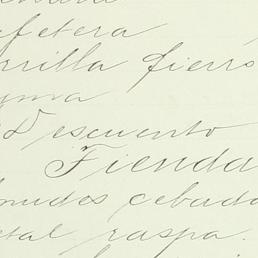 fetera
rrilla fierro
uma
Descuento
Tienda
nudes cebada
etal raspa.